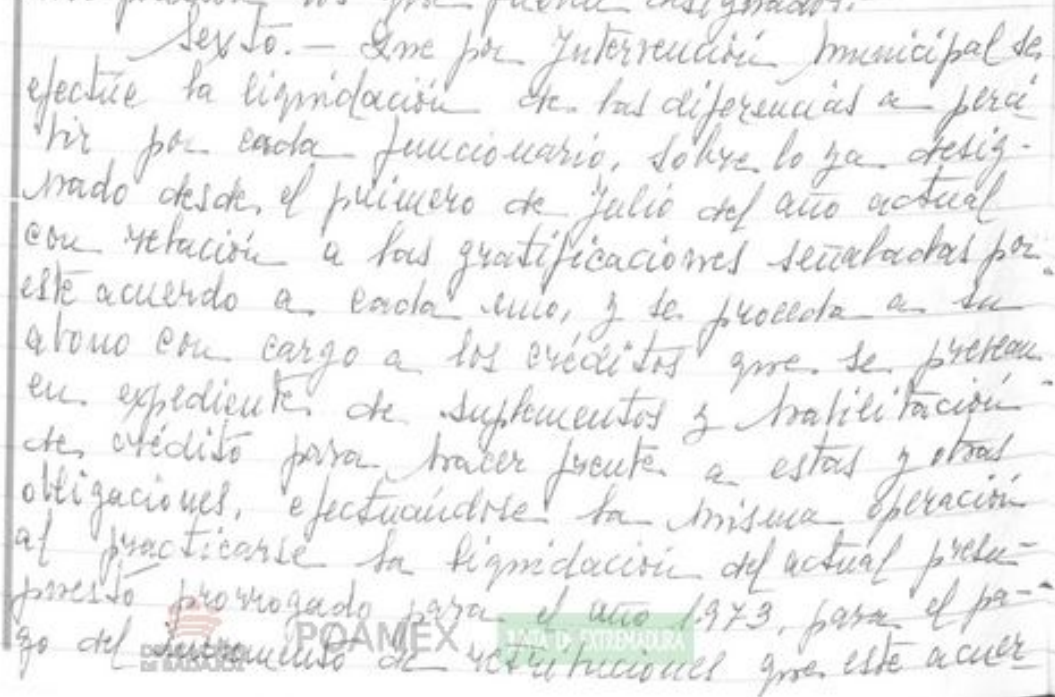 los que fueron consignados.-
Sexto.- Que por Intervención Municipal se
efectúe la liquidación de las diferencias a perci
bir por cada funcionario, sobre lo ya desig-
nado desde el primero de Julio del año actual
con relación a las gratificaciones señaladas por
este acuerdo a cada uno, y se proceda a su
abono con cargo a los créditos que se preveen
en expediente de suplementos y habilitación
de crédito para hacer frente a estas y otras
obligaciones, efectuándose la misma operación
al practicarse la liquidación del actual presu-
puesto prorrogado para el año 1.973, para el pa-
go del incremento de retribuciones que este acuer
DE BADAJOZ POAMEX JUNTA DE EXTREMADURA